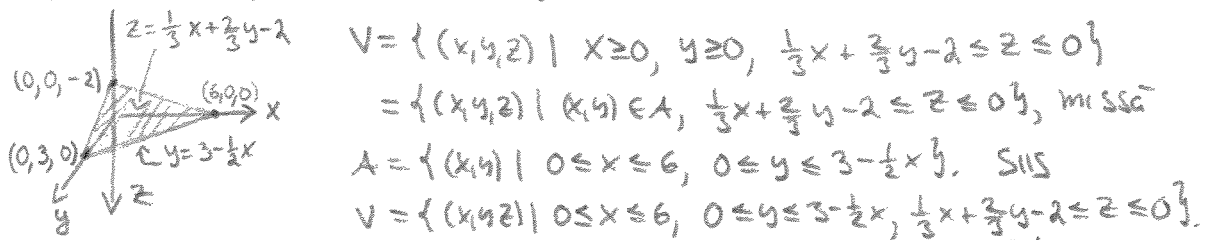 z=\frac{1}{3}x+\frac{2}{3}y-2
(0,0,-2)
(6,0,0)
x
(0,3,0)
y=3-\frac{1}{2}x
z
y
V={(x,y,z) | x≥0, y≥0, \frac{1}{3}x+\frac{2}{3}y-2≤z≤0}
={(x,y,z) | (x,y)∈A, \frac{1}{3}x+\frac{2}{3}y-2≤z≤0}, missä
A={(x,y) | 0≤x≤6, 0≤y≤3-\frac{1}{2}x}. Siis
V={(x,y,z) | 0≤x≤6, 0≤y≤3-\frac{1}{2}x, \frac{1}{3}x+\frac{2}{3}y-2≤z≤0}.